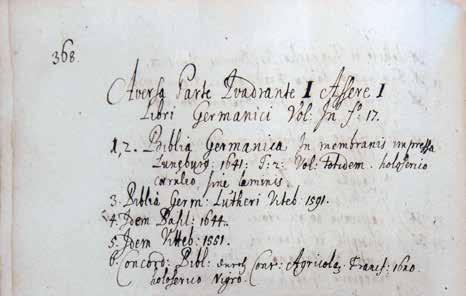 368.
Aversa Parte Quadrante I Assere I
Libri Germanici Vol: In fº 17.
1, 2. Biblia Germanica In membranis impressa
Lunæburg: 1641: T: 2: Vol: totidem. holoserico
cæruleo, sine laminis.
3. Biblia Germ: Lutheri Viteb 1591.
4. Idem Basil: 1644.
5. Idem Vitteb: 1551.
6. Concord: Bibl: durch Conr: Agricola, Francf: 1620.
holoserico Nigro.